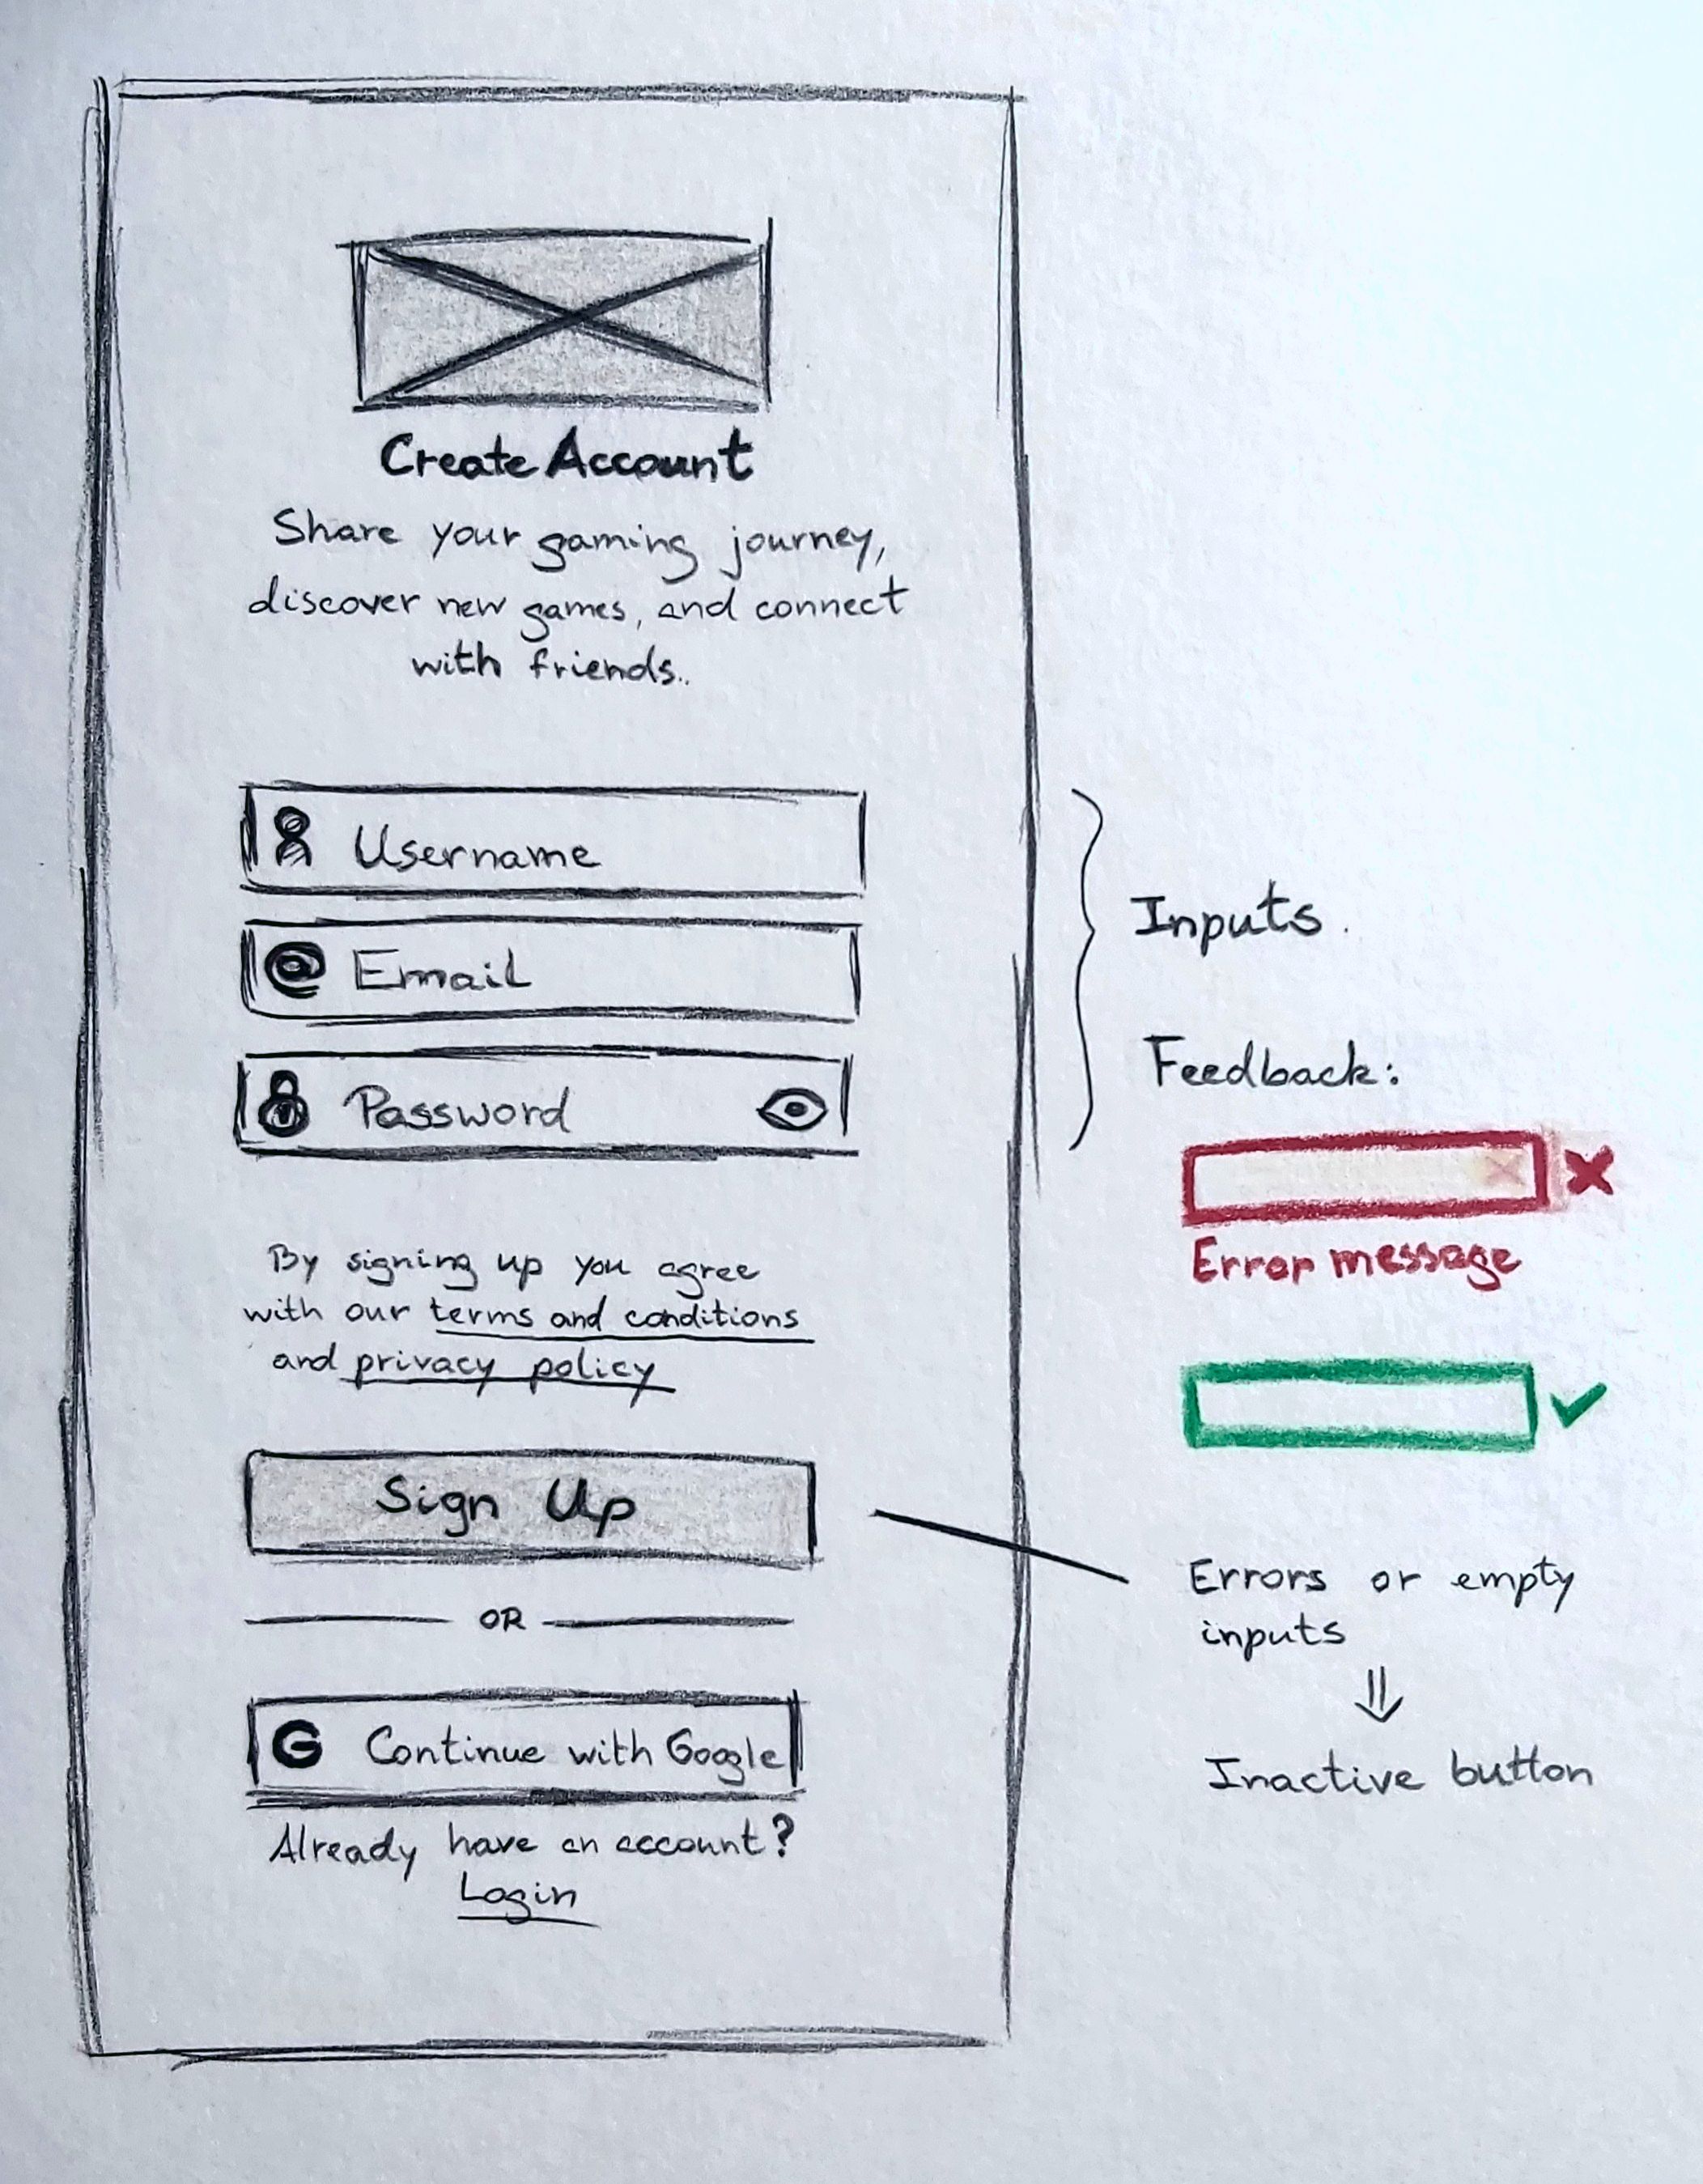 Create Account
Share your gaming journey,
discover new games, and connect
with friends..
Username
@ Email
Password
Inputs.
Feedback:
Error message
By signing up you agree
with our terms and conditions
and privacy policy
Sign Up
OR
G Continue with Google
Already have an account?
Login
Errors or empty
inputs
⇓
Inactive button